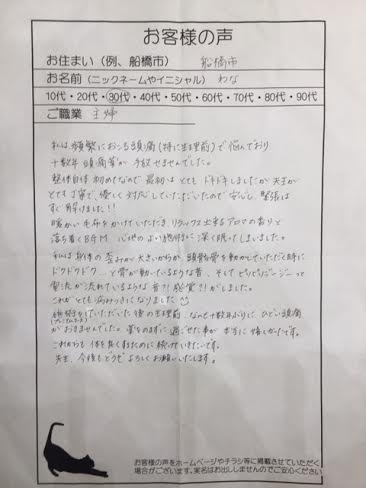 お客様の声
お住まい（例、船橋市） 船橋市
お名前（ニックネームやイニシャル） わな
10代・20代・30代・40代・50代・60代・70代・80代・90代
ご職業 主婦
私は頻繁におこる頭痛（特に生理前）で悩んでおり
十数年頭痛薬が手放せませんでした。
整体自体初めてなので最初はとてもドキドキしましたが先生が
とても丁寧で、優しく対応していただいたので安心し、緊張は
すぐ解けました!!
暖かい毛布をかけていただき、リラックス出来るアロマの香りと
落ち着くBGM 心地のよい施術に深く眠ってしまいました。
私は身体の歪みが大きいからか、頭蓋骨を動かしていただく時に
ドクドクドク…と骨が動いているような音、そしてピリピリジージーって
電流が流れているような音?!感覚?!がしました。
これがとても病みつきになりました
施術をしていただいた後の生理前、なんと十数年ぶりに、ひどい頭痛
がおきませんでした。薬をのまずに過ごせた事が本当に嬉しかったです。
これからも体を良くするために続けていきたいです。
先生、今後もどうぞよろしくお願いします。
お客様の声をホームページやチラシ等に掲載させていただく
場合がございます。実名はお出ししませんのでご安心ください